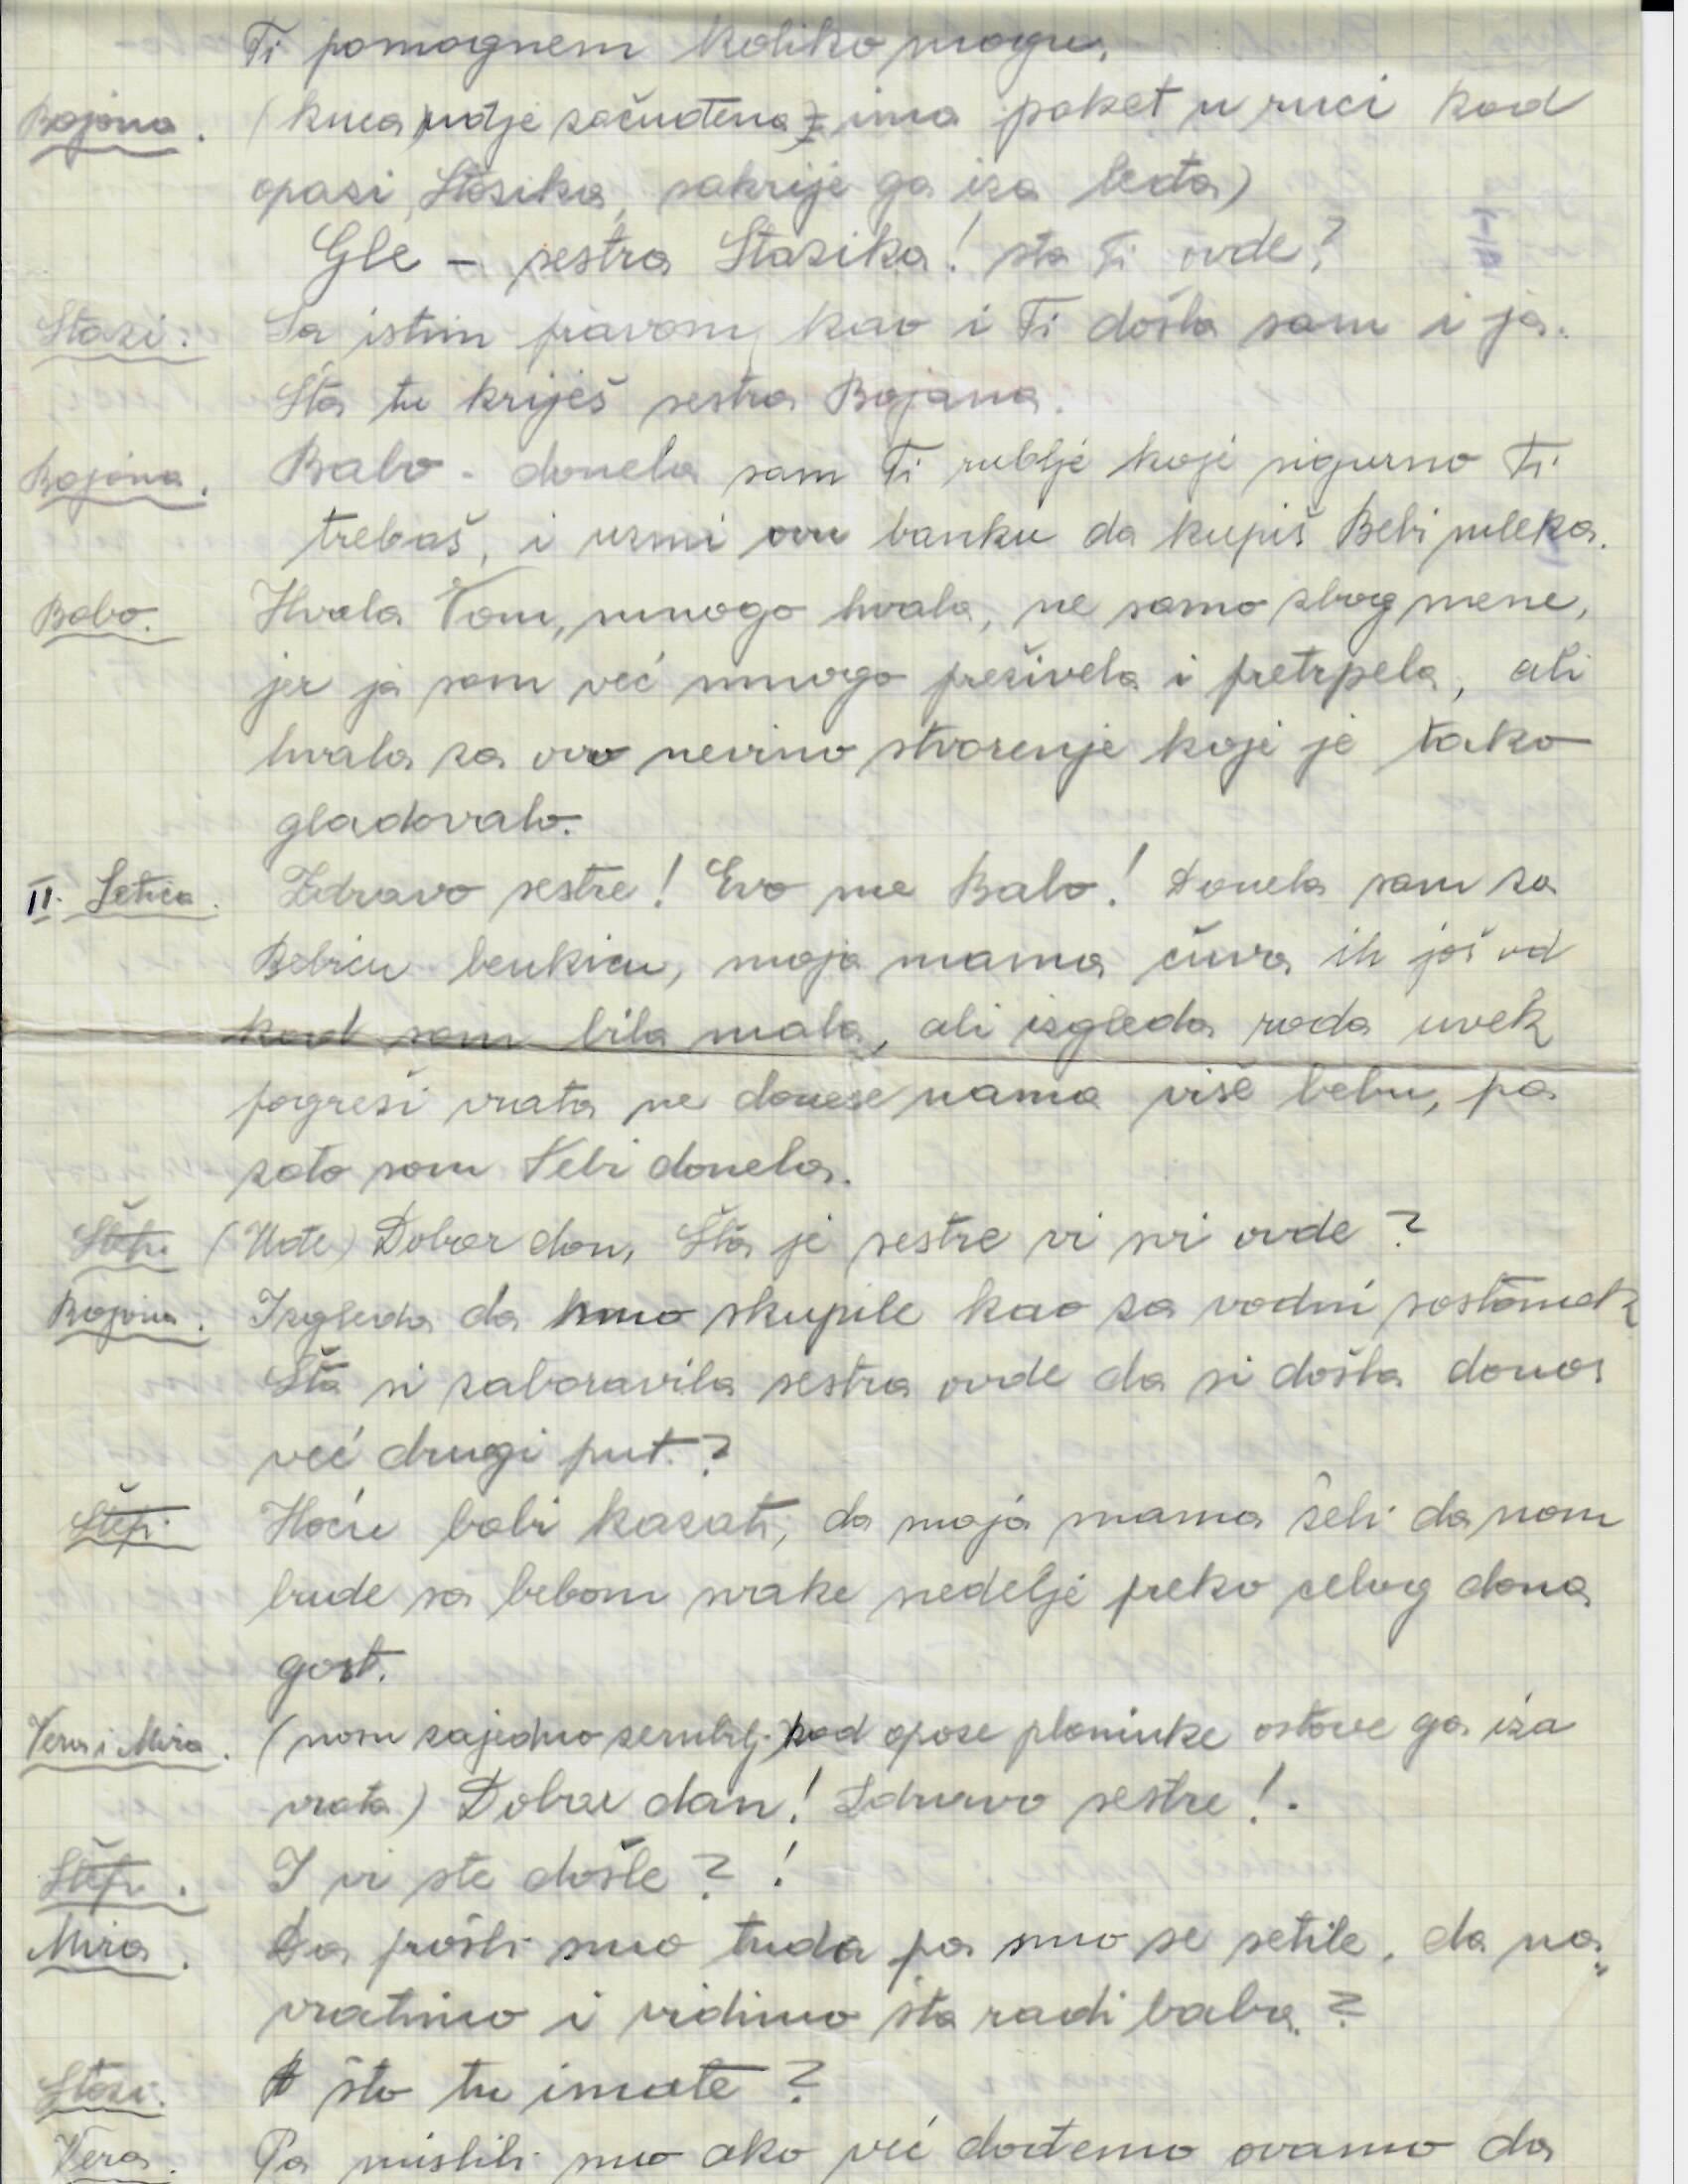 Ti pomognem koliko mogu.
Bojana. (kuca, udje začuđena, ima paket u ruci kad
opazi Stazika, sakrije ga iza leđa)
Gle – sestra Stazika! šta Ti ovde?
Stazi: Sa istim pravom kao i Ti došla sam i ja.
Šta tu kriješ sestra Bojana.
Bojana. Babo – donela sam Ti rublje koje sigurno Ti
trebaš, i uzmi ovu banku da kupiš Bebi mleka.
Babo. Hvala Vam, mnogo hvala, ne samo zbog mene,
jer ja sam već mnogo preživela i pretrpela, ali
hvala za ovo nevino stvorenje koje je tako
gladovalo.
II. Setica. Zdravo sestre! Evo me Babo! Donela sam za
Bebicu benkicu, moja mama čuva ih još od
kad sam bila mala, ali izgleda roda uvek
pogreši vrata ne donese nama više bebu, pa
zato sam Tebi donela.
Štefi (Uđe) Dobar dan, Šta je sestre vi svi ovde?
Bojana. Izgleda da smo skupile kao za vodni sastanak
Šta si zaboravila sestra ovde da si došla danas
već drugi put?
Štefi Hoću babi kazati, da moja mama želi da nam
bude sa bebom svake nedelje preko celog dana
gost.
Vera i Mira. (nose zajedno zemblj. kad opaze planinke ostave ga iza
vrata) Dobar dan! Zdravo sestre!.
Štefi. I vi ste došle?!
Mira. Da prošli smo tuda pa smo se setile, da na„
vratimo i vidimo šta radi baba?
Stazi. A što tu imate?
Vera. Pa mislili smo ako već dođemo ovamo da